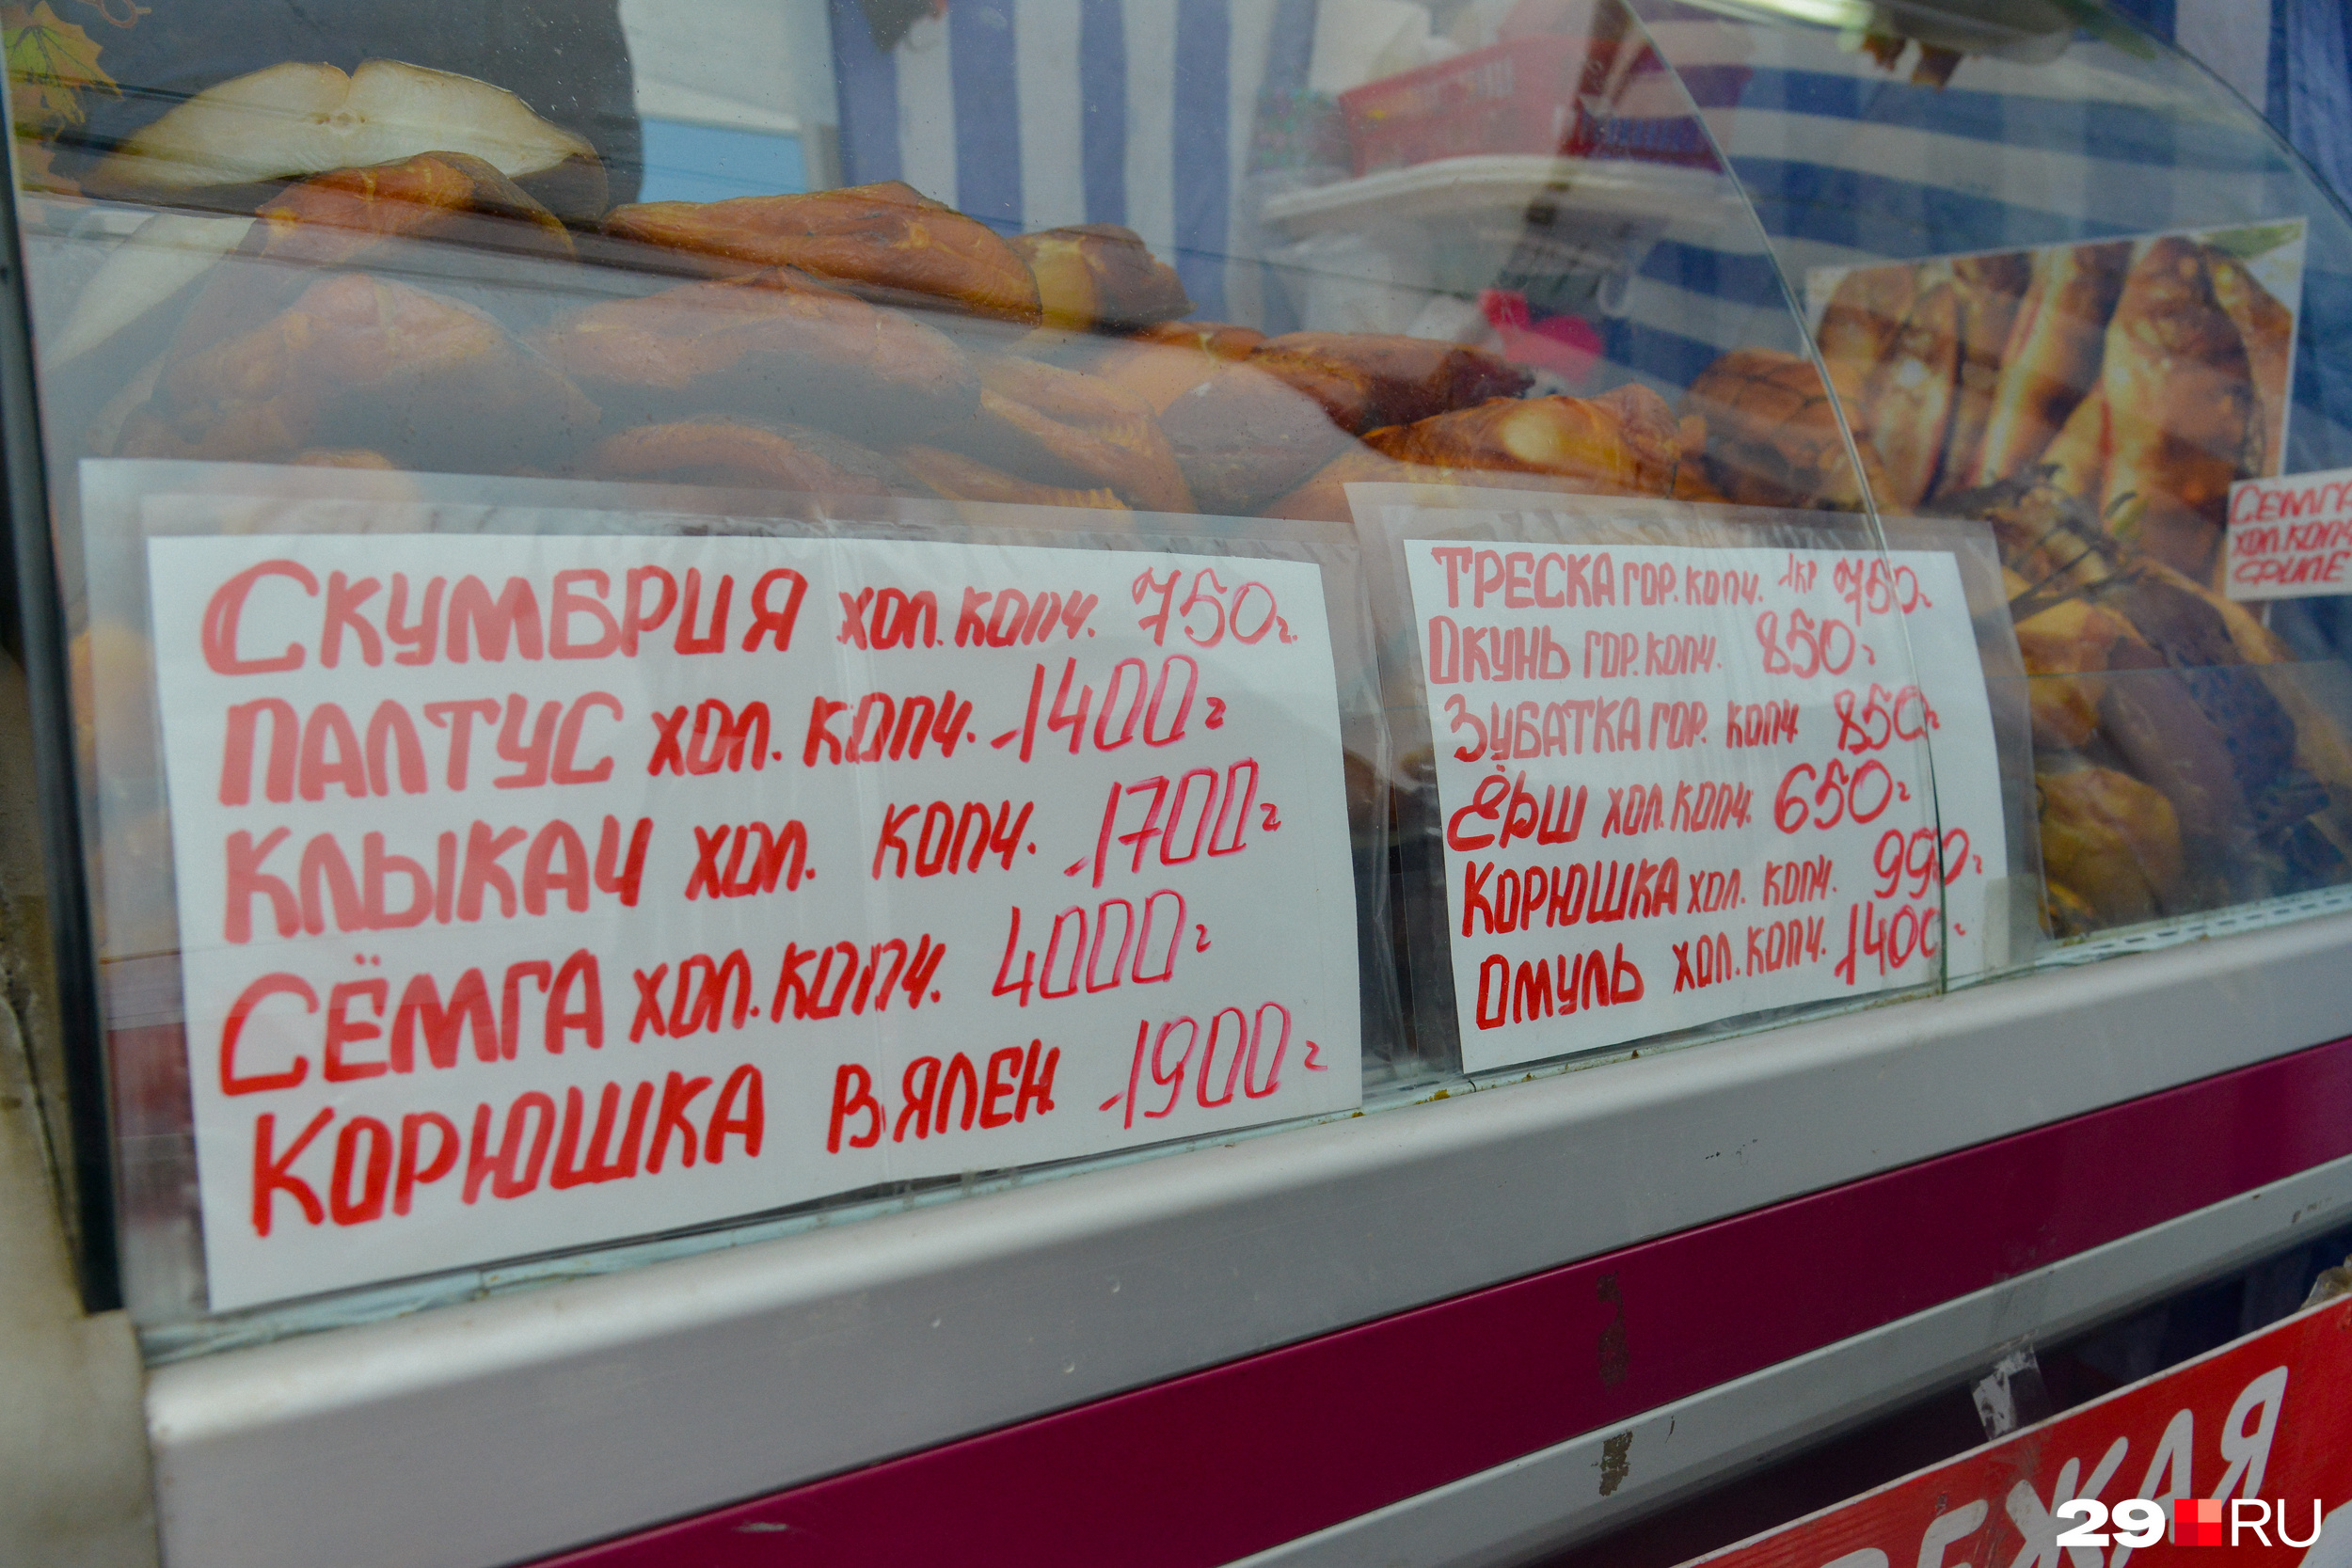 СКУМБРИЯ ХОЛ. КОПЧ. 750г.
ПАЛТУС ХОЛ. КОПЧ. -1400г
КЛЫКАЧ ХОЛ. КОПЧ. -1700г
СЁМГА ХОЛ. КОПЧ. 4000г
КОРЮШКА ВЯЛЕН. -1900г
ТРЕСКА ГОР. КОПЧ. 1кг 750г
ОКУНЬ ГОР. КОПЧ. 850г
ЗУБАТКА ГОР. КОПЧ 850г
ЁРШ ХОЛ. КОПЧ. 650г
КОРЮШКА ХОЛ. КОПЧ. 990г
ОМУЛЬ ХОЛ. КОПЧ. 1400-
СЁМГА
ХОЛ. КОПЧ
ФИЛЕ
ЕЖАЯ
29 RU